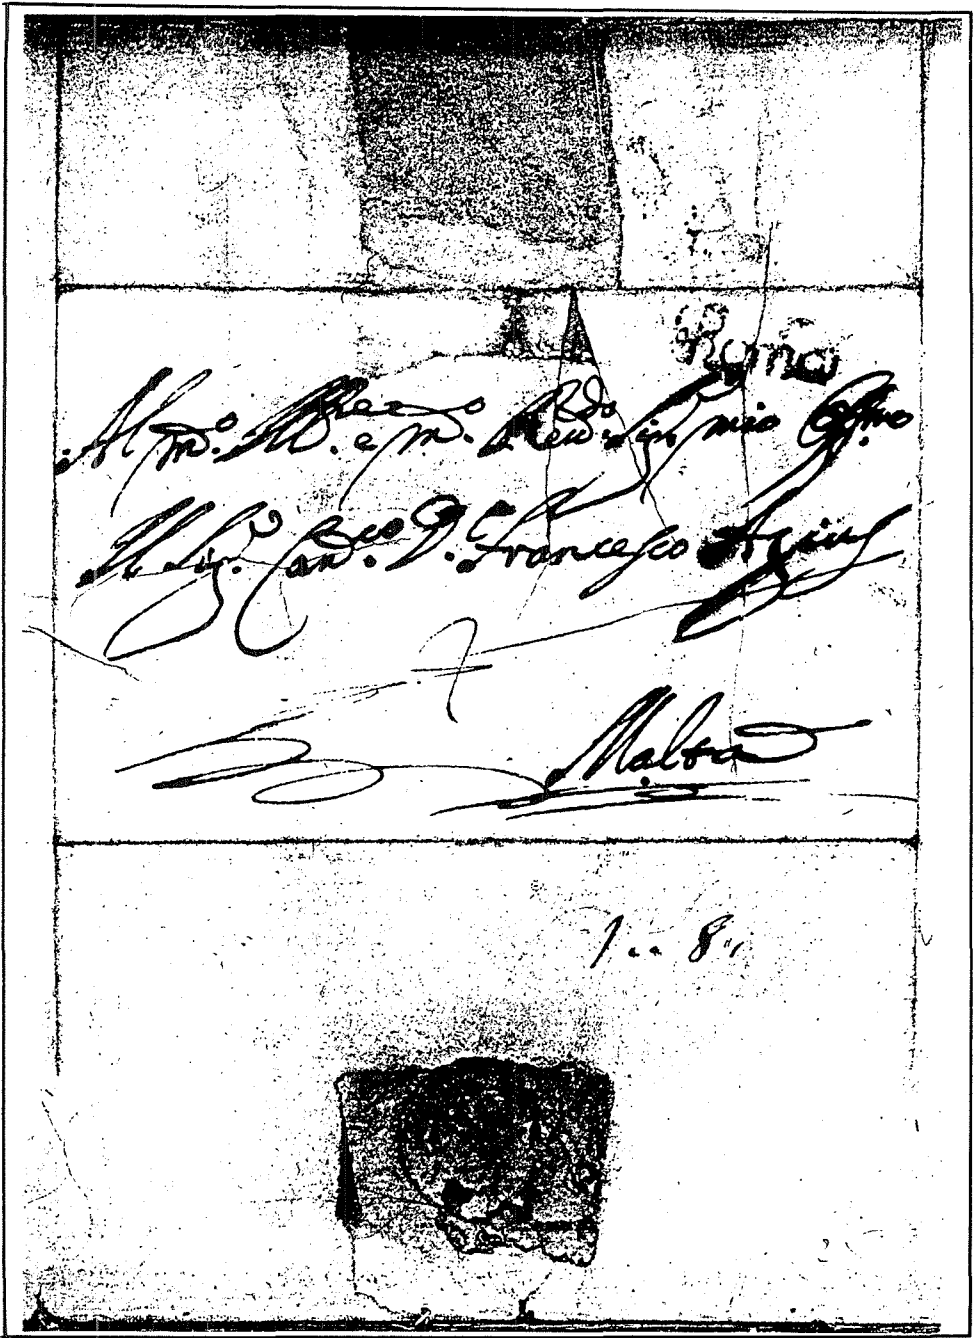 Roma
Al m.to Ill.re e m.to Rev.do Sig.r mio Oss.mo
Il Sig.r Can.co D. Francesco Agius
Malta
1 .. 8